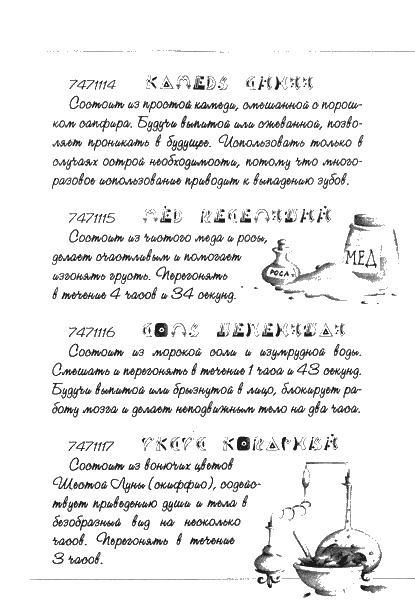 7471114 КАМЕДЬ СИНЯЯ
Состоит из простой камеди, смешанной с порош-
ком сапфира. Будучи выпитой или сжеванной, позво-
ляет проникать в будущее. Использовать только в
случаях острой необходимости, потому что много-
разовое использование приводит к выпадению зубов.
7471115 МЁД ВЕСЕЛЯЩИЙ
Состоит из чистого меда и росы,
делает счастливым и помогает
изгонять грусть. Перегонять
в течение 4 часов и 34 секунд.
РОСА
МЕД
7471116 СОЛЬ ЦЕПЕНЯЩАЯ
Состоит из морской соли и изумрудной воды.
Смешать и перегонять в течение 1 часа и 43 секунд.
Будучи выпитой или брызнутой в лицо, блокирует ра-
боту мозга и делает неподвижным тело на два часа.
7471117 УКСУС КОВАРНЫЙ
Состоит из вонючих цветов
Шестой Луны (скиффио), содейс-
твует приведению души и тела в
безобразный вид на несколько
часов. Перегонять в течение
3 часов.